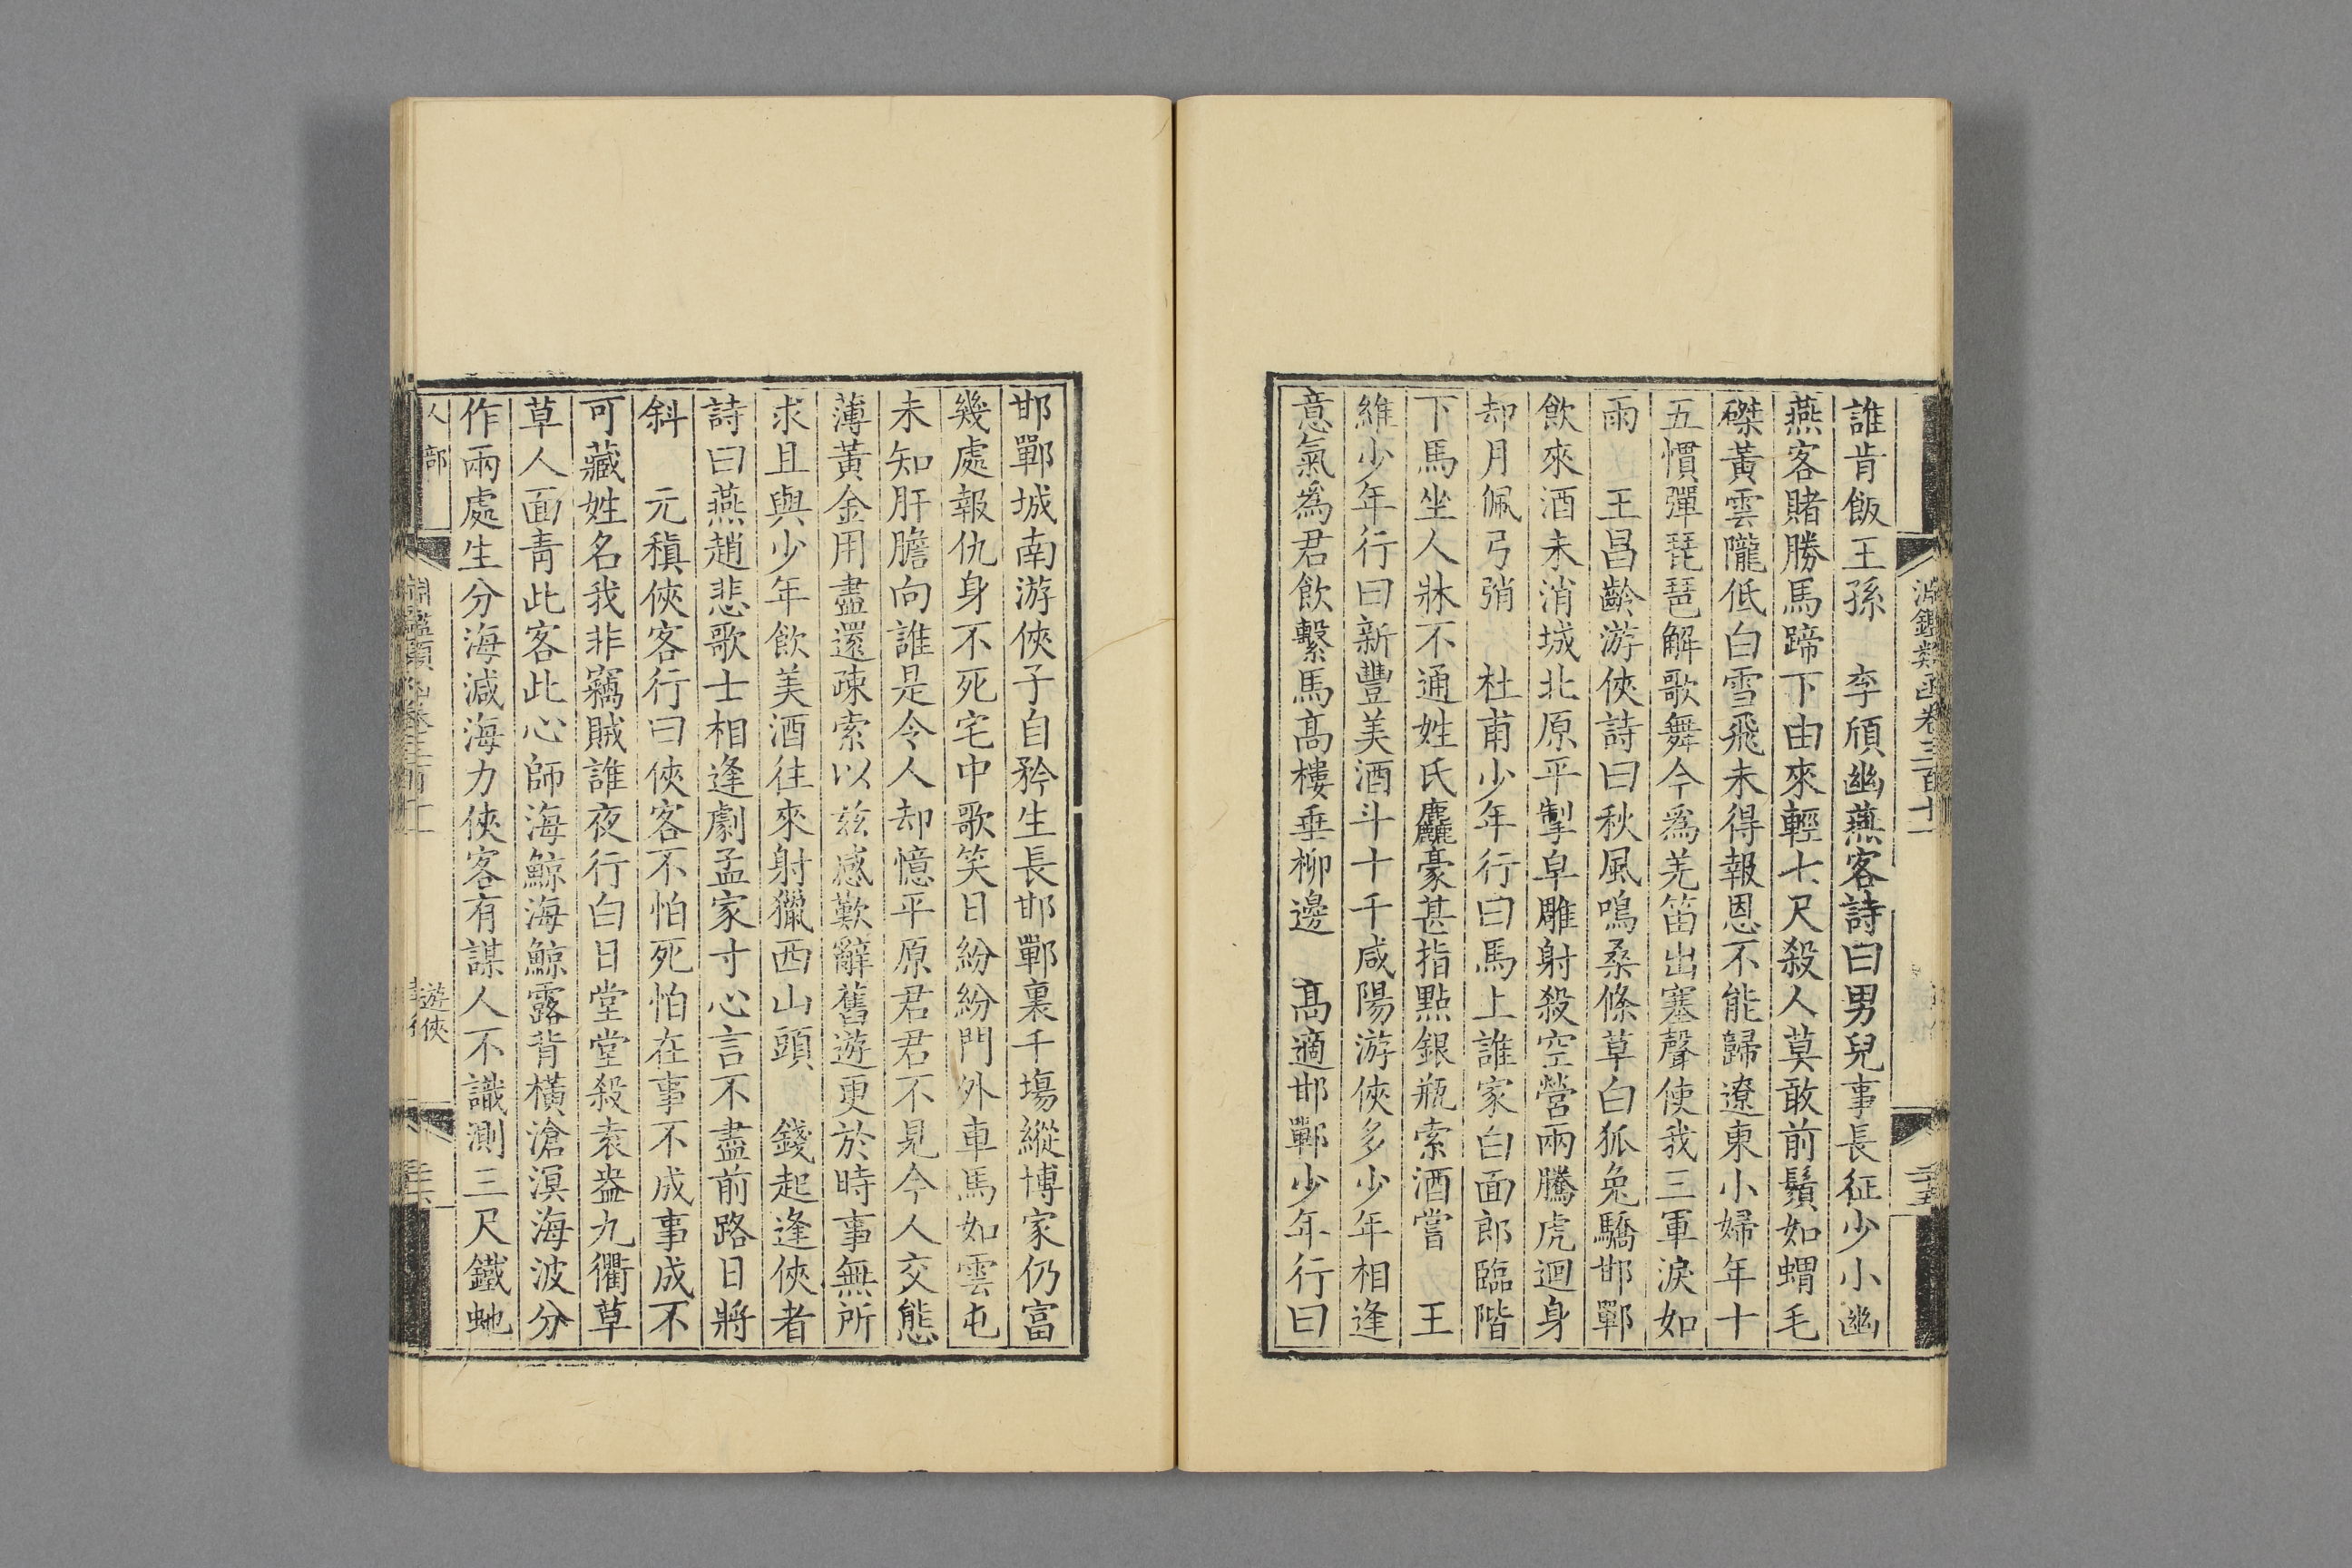 淵鑑類函卷三百十一
誰肯飯王孫　李頎幽燕客詩曰男兒事長征少小幽
燕客賭勝馬蹄下由來輕七尺殺人莫敢前鬚如蝟毛
磔黃雲隴低白雪飛未得報恩不能歸遼東小婦年十
五慣彈琵琶解歌舞今爲羌笛出塞聲使我三軍淚如
雨　王昌齡游俠詩曰秋風鳴桑條草白狐兔驕邯鄲
飲來酒未消城北原平掣皁雕射殺空營兩騰虎迴身
却月佩弓弰　杜甫少年行曰馬上誰家白面郎臨階
下馬坐人牀不通姓氏麤豪甚指點銀瓶索酒嘗　王
維少年行曰新豐美酒斗十千咸陽游俠多少年相逢
意氣爲君飲繫馬高樓垂柳邊　高適邯鄲少年行曰
邯鄲城南游俠子自矜生長邯鄲裏千場縱博家仍富
幾處報仇身不死宅中歌笑日紛紛門外車馬如雲屯
未知肝膽向誰是令人却憶平原君君不見今人交態
薄黃金用盡還疎索以兹感歎辭舊遊更於時事無所
求且與少年飲美酒往來射獵西山頭　錢起逢俠者
詩曰燕趙悲歌士相逢劇孟家寸心言不盡前路日將
斜　元稹俠客行曰俠客不怕死怕在事不成事成不
可藏姓名我非竊賊誰夜行白日堂堂殺袁盎九衢草
草人面青此客此心師海鯨海鯨露背橫滄溟海波分
作兩處生分海減海力俠客有謀人不識測三尺鐵虵
人部
遊俠